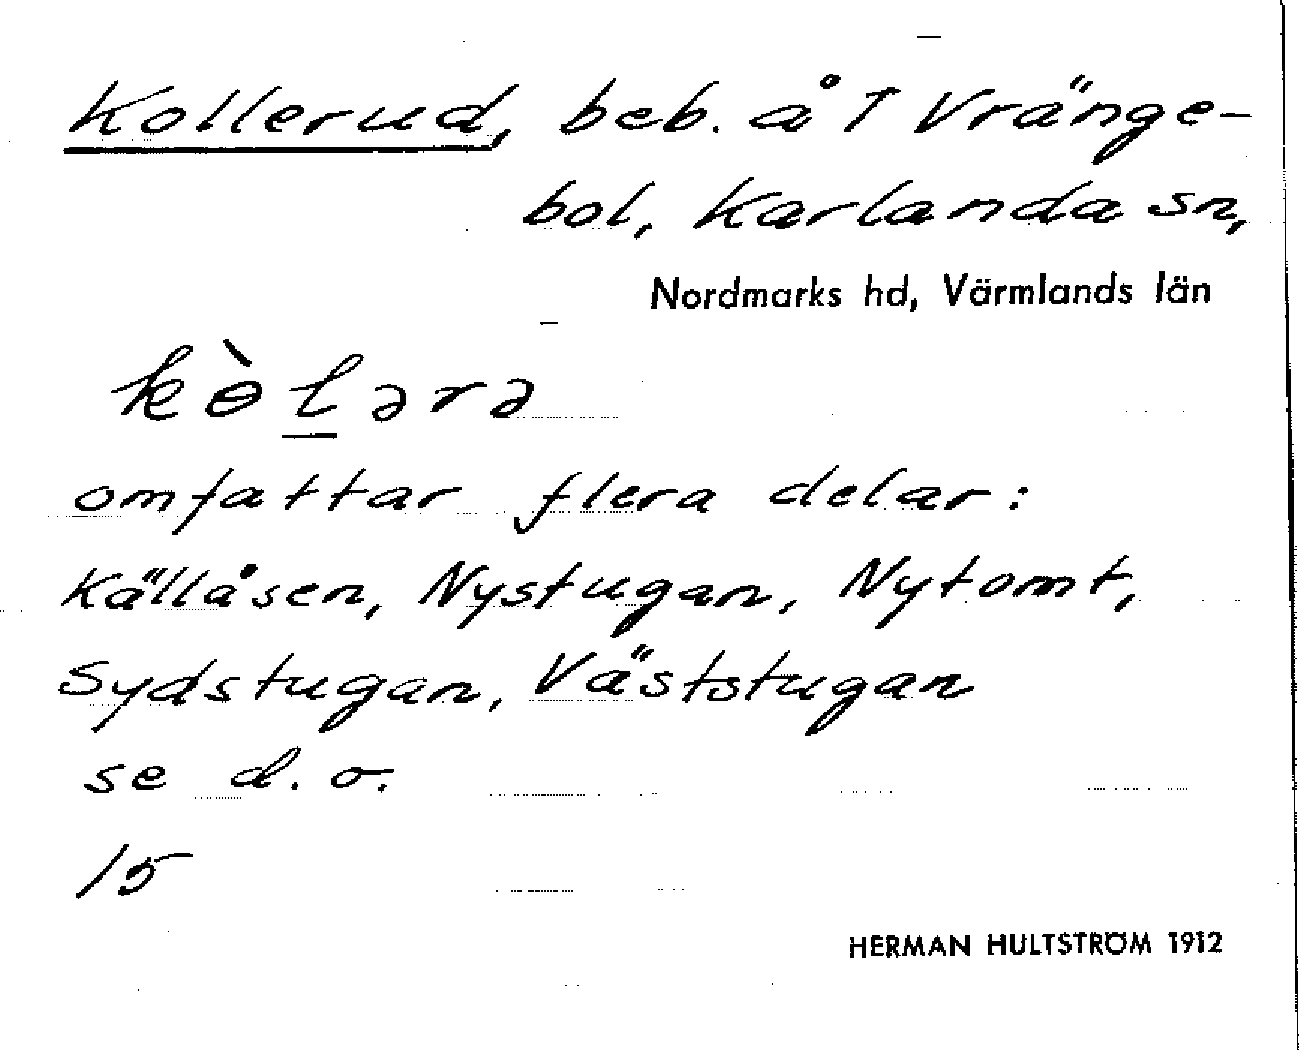 Kollerud, beb. å 1 Vränge-
bol, Karlanda sn,
Nordmarks hd, Värmlands län
kòlərə
omfattar flera delar:
Källåsen, Nystugan, Nytomt,
Sydstugan, Väststugan
se d. o.
15
HERMAN HULTSTRÖM 1912